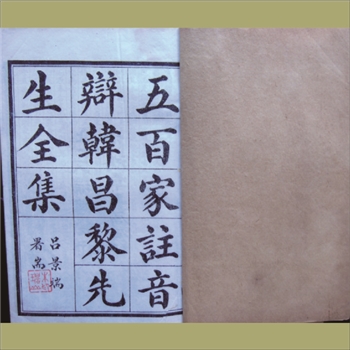 五百家註音
辯韓昌黎先
生全集
呂景端
署耑